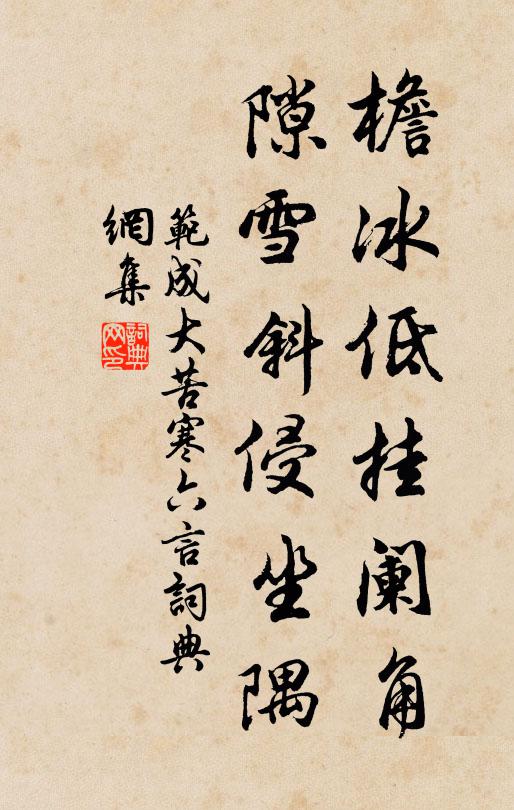 檐冰低挂阑角
隙雪斜侵坐隅
範成大苦寒六言詞典
網集
詞典网印